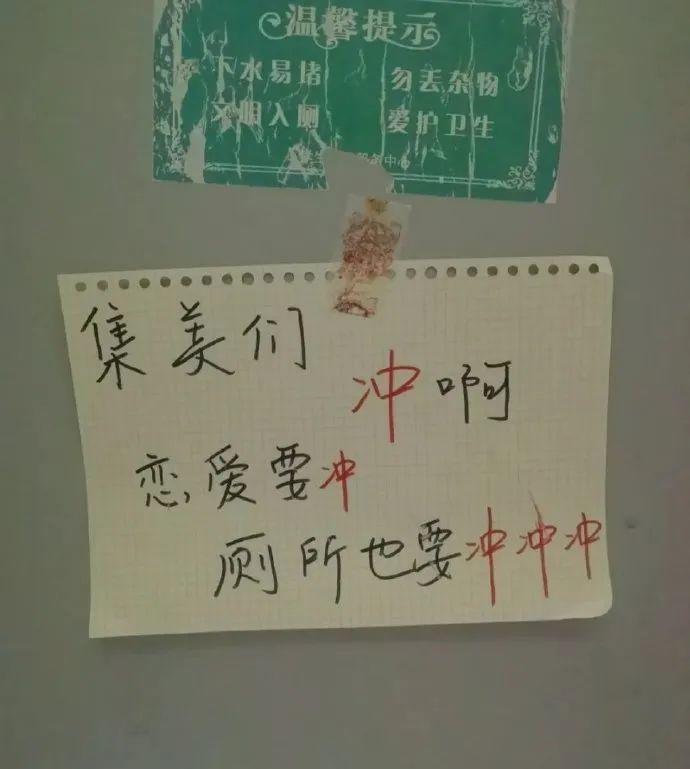 温馨提示
下水易堵 勿丢杂物
文明入厕 爱护卫生
集美们
冲啊
恋爱要冲
厕所也要冲冲冲